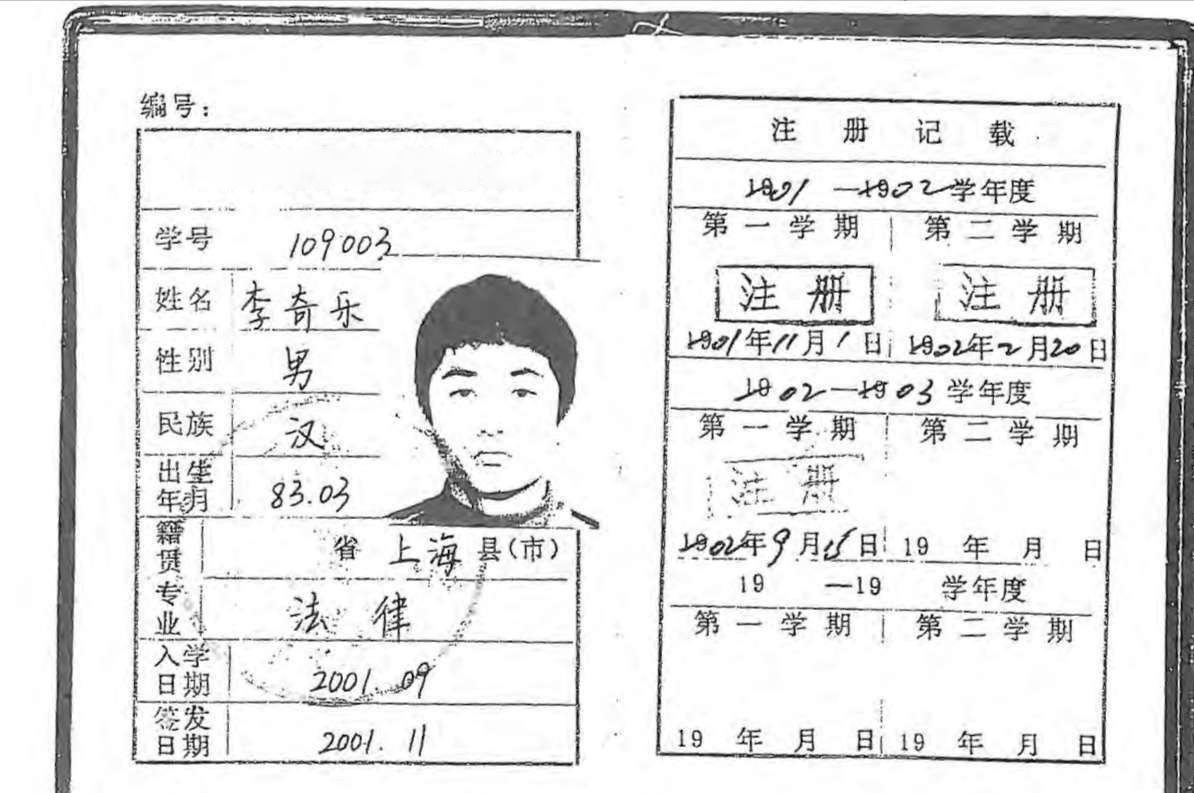 编号：
学号 109003
姓名 李奇乐
性别 男
民族 汉
出生年月 83.03
籍贯 省 上海 县(市)
专业 法律
入学日期 2001.09
签发日期 2001.11
注册记载
1901—1902学年度
第一学期 第二学期
注册 注册
1901年11月1日 1902年2月20日
1902—1903学年度
第一学期 第二学期
注册
1902年9月15日 19 年 月 日
19 —19 学年度
第一学期 第二学期
19 年 月 日 19 年 月 日